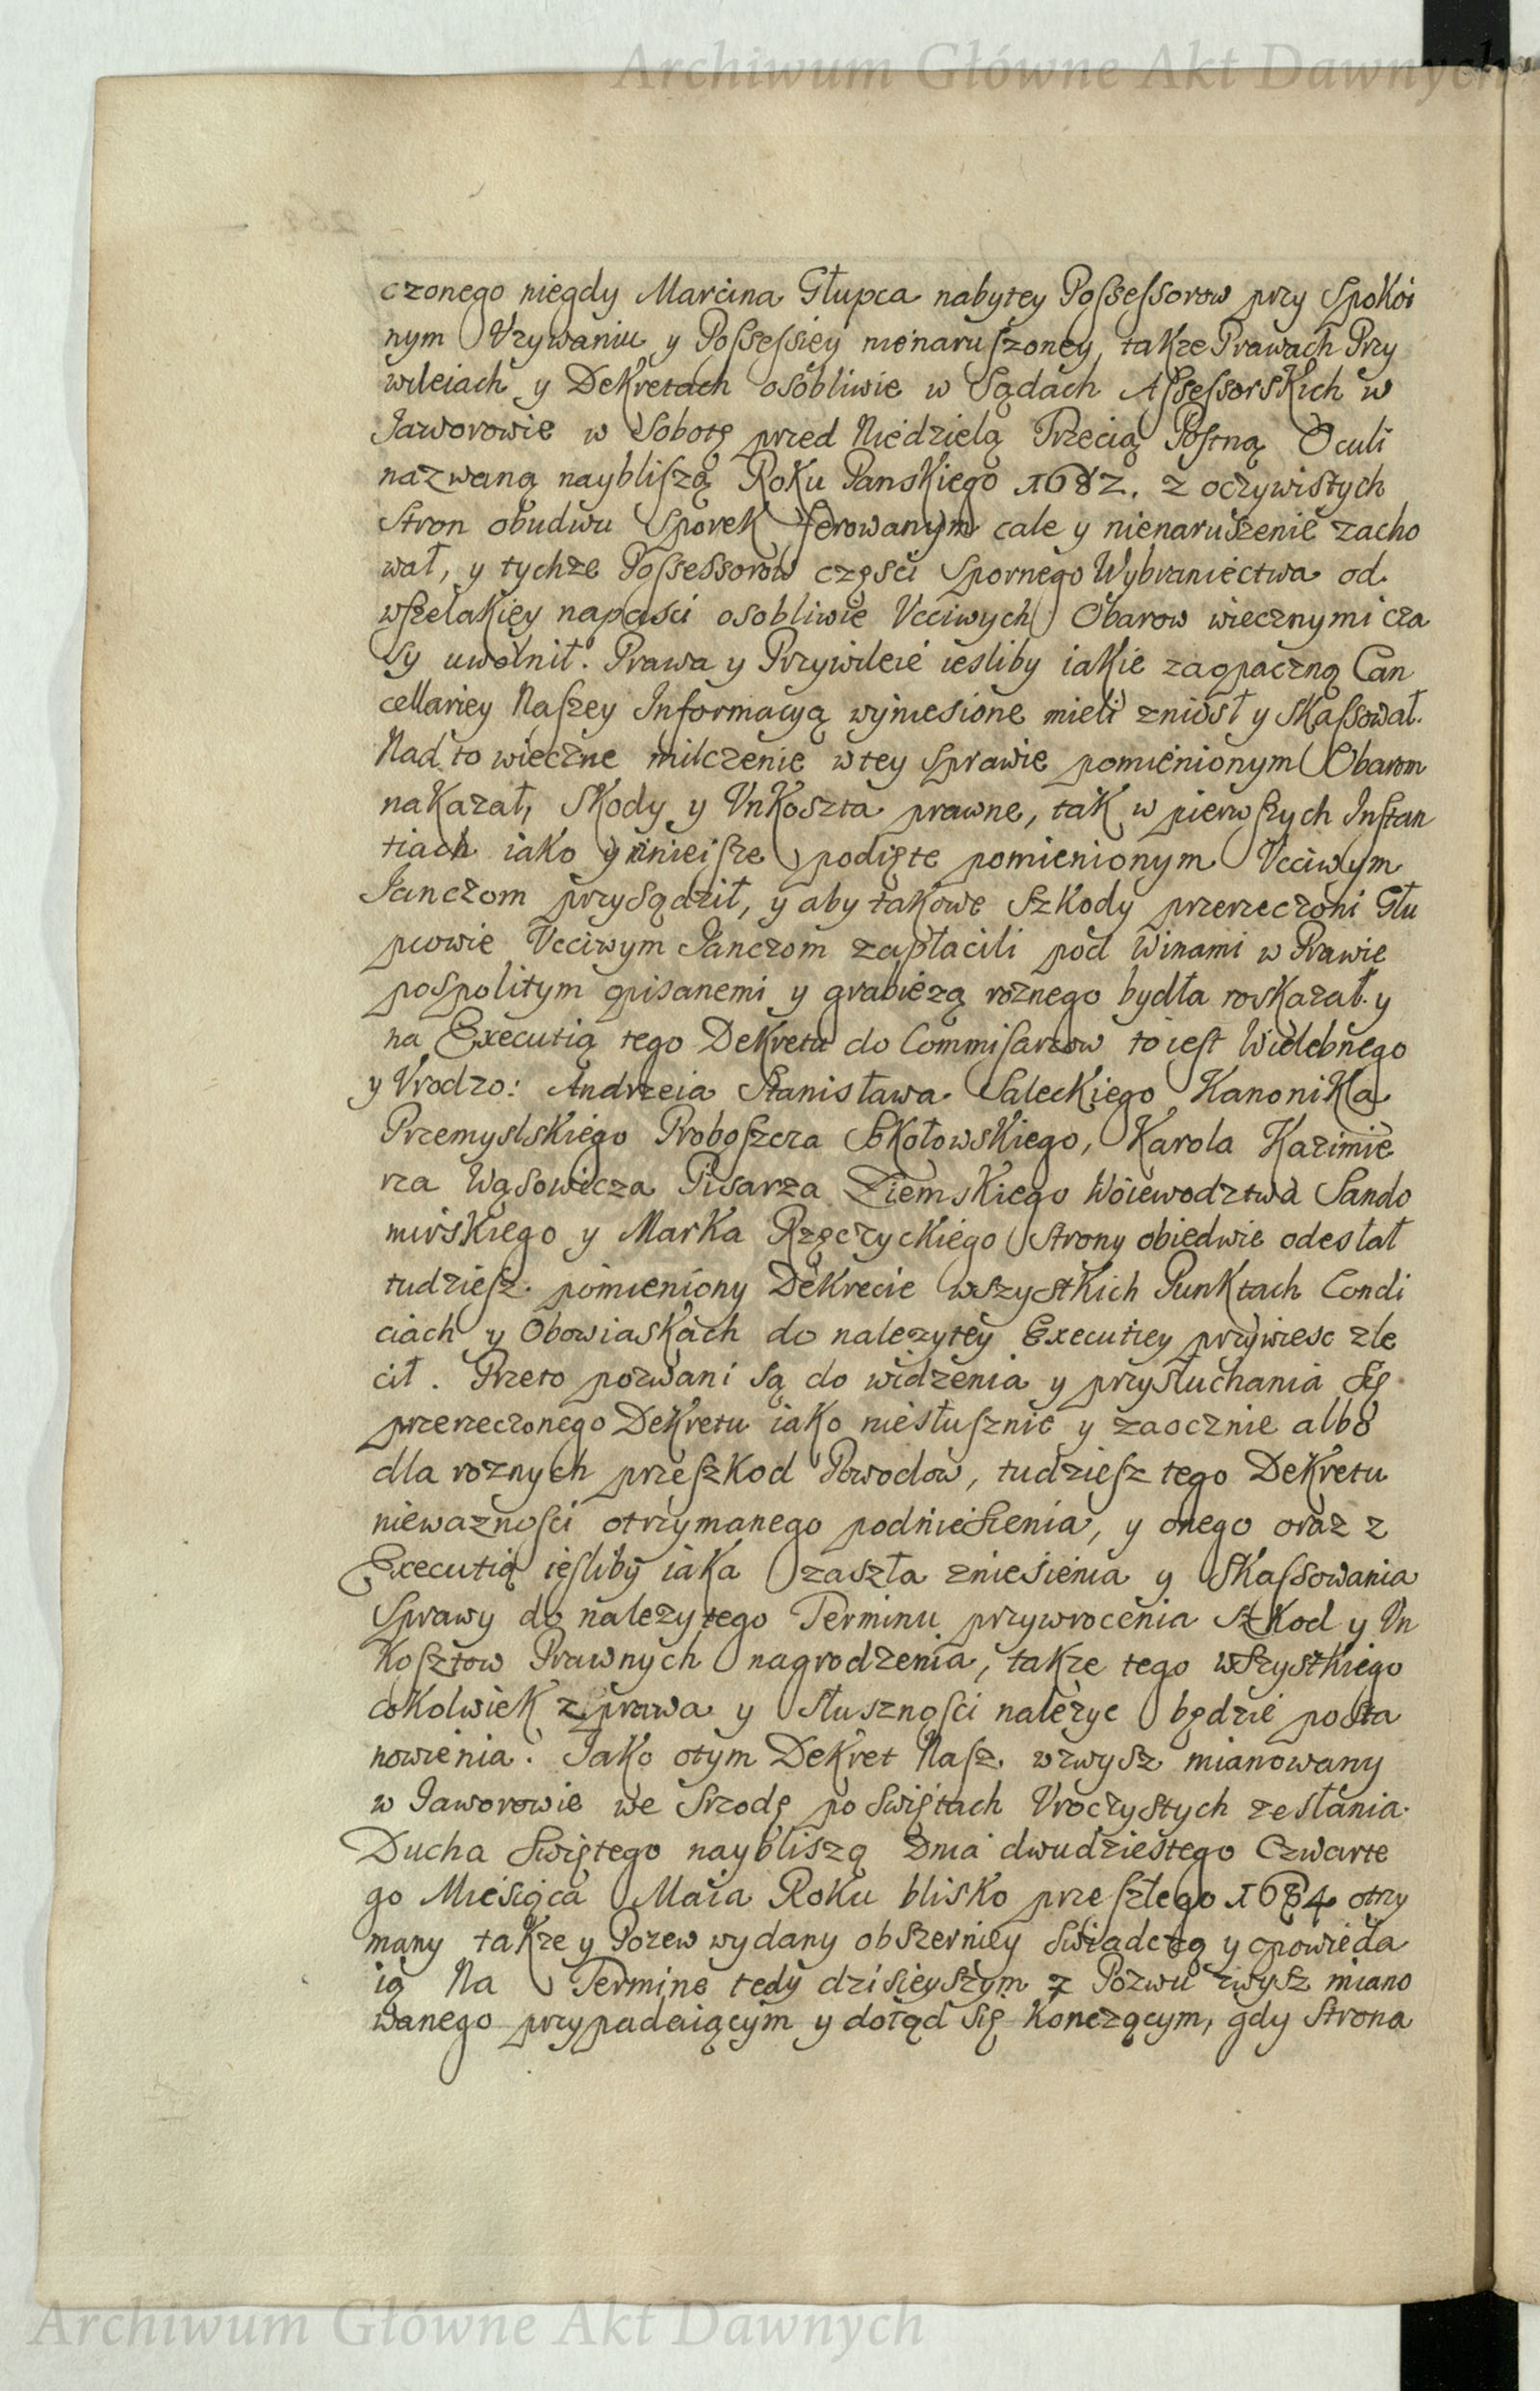 Archiwum Główne Akt Dawnych
czonego niegdy Marcina Głupca nabytey Possessorow przy Spokoi
nym Vzywaniu y Possessiey nienaruszoney, takze Prawach Przy
wileiach y Dekretach osobliwie w Sądach Assessorskich w
Jaworowie w Sobotę przed Niedzielą Trzecią Postną Oculi
nazwaną naybliszą Roku Panskiego 1682. z oczywistych
Stron obudwu Sporek ferowanym cale y nienaruszenie zacho
wał, y tychze Possessorow częsci Spornego Wybraniectwa od
wszelakiey napasci osobliwie Vcciwych Obarow wiecznymi cza
sy uwolnił. Prawa y Przywileie iesliby iakie zaopaczną Can
cellariey Naszey Informacyą wyniesione mieli zniosł y skassował.
Nad to wieczne milczenie wtey Sprawie pomienionym Obarom
nakazał, Skody y Vnkoszta prawne, tak w pierwszych Instan
tiach iako y ninieisze podięte pomienionym Vcciwym
Janczom przysądził, y aby takowe Szkody przerzeczoni Głu
pcowie Vcciwym Janczom zapłacili pod Winami w Prawie
pospolitym opisanemi y grabiezą roznego bydła roskazał. y
na Executią tego Dekretu do Commisarzow to iest Wielebnego
y Vrodzo: Andrzeia Stanisława Saleckiego Kanonika
Przemyslskiego Proboszcza Sokołowskiego, Karola Kazimie
rza Wąsowicza Pisarza Ziemskiego Woiewodztwa Sando
mirskiego y Marka Rzęczyckiego Strony obiedwie odesłał
tudziesz pomieniony Dekrecie wszystkich Punktach Condi
ciach y Obowiaskach do nalezytey Executiey przywiesc zle
cił. Przeto pozwani są do widzenia y przysłuchania się
przerzeczonego Dekretu iako niesłusznie y zaocznie albo
dla roznych przeszkod Powodow, tudziesz tego Dekretu
niewaznosci otrzymanego podniesienia, y onego oraz z
Executią iesliby iaka zaszła zniesienia y Skassowania
Sprawy do nalezytego Terminu przywrocenia Szkod y Vn
kosztow Prawnych nagrodzenia, takze tego wszystkiego
cokolwiek z prawa y słusznosci nalezyc będzie posta
nowienia. Jako otym Dekret Nasz wzwysz mianowany
w Jaworowie we Srzodę po Swiętach Vroczystych zesłania
Ducha Swiętego naybliszą Dnia dwudziestego Czwarte
go Miesiąca Maia Roku blisko przeszłego 1684 otrzy
many takze y Pozew wydany obszerniey swiadczą y opowieda
ią Na Termine tedy dzisieyszym z Pozwu zwysz miano
wanego przypadaiącym y dotąd się konczącym, gdy Strona
Archiwum Główne Akt Dawnych